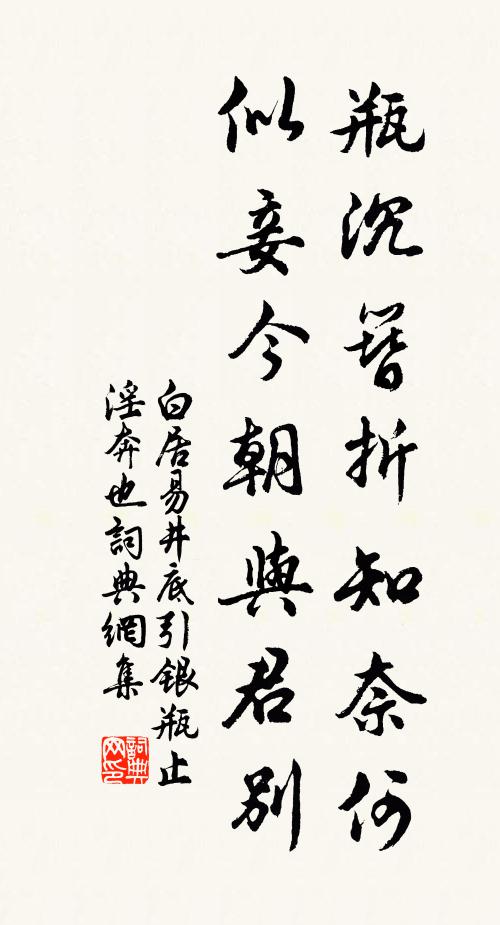 瓶沉簪折知奈何
似妾今朝與君別
白居易井底引銀瓶止
淫奔也詞典網集
詞典网印